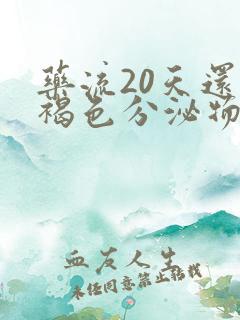 藥流20天還
褐色分泌物
血友人生
未经同意禁止转载